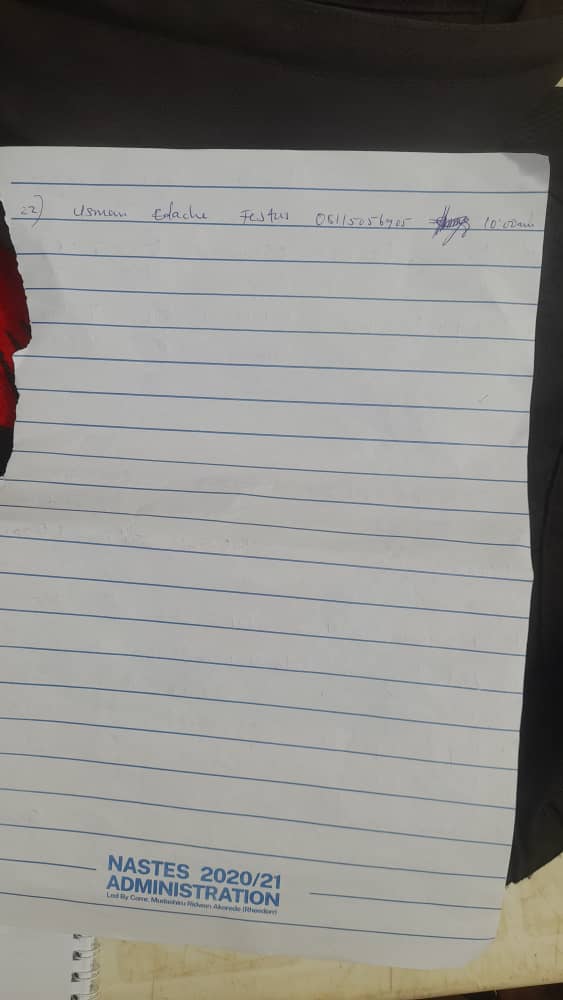 22) Usman Edache Festus 08115056905 10:00am
NASTES 2020/21
ADMINISTRATION
Led By Comr. Mudashiru Ridwan Akorede (Rheedom)